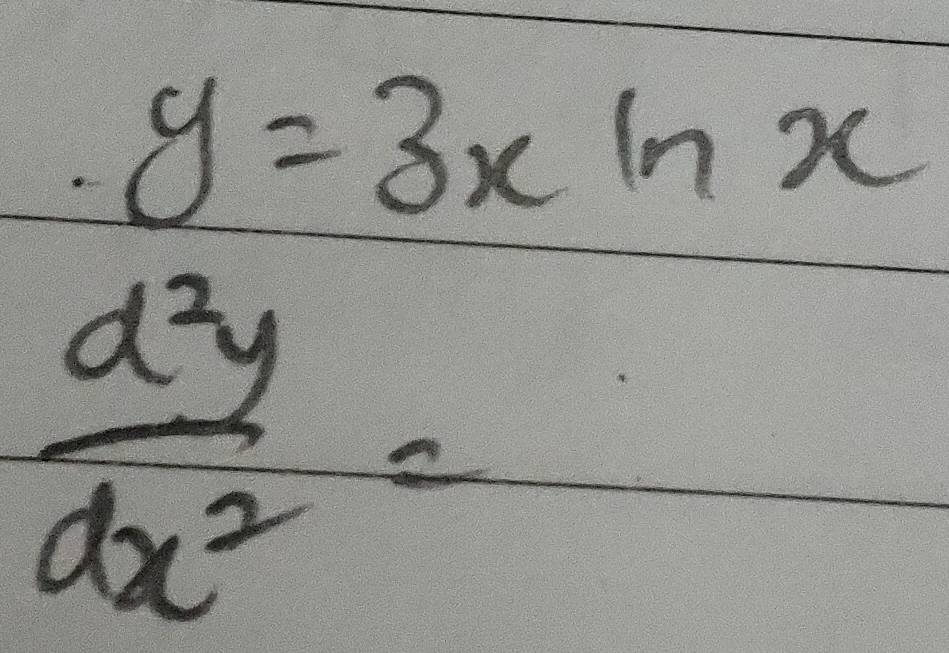 y = 3x ln x
d²y
dx² =